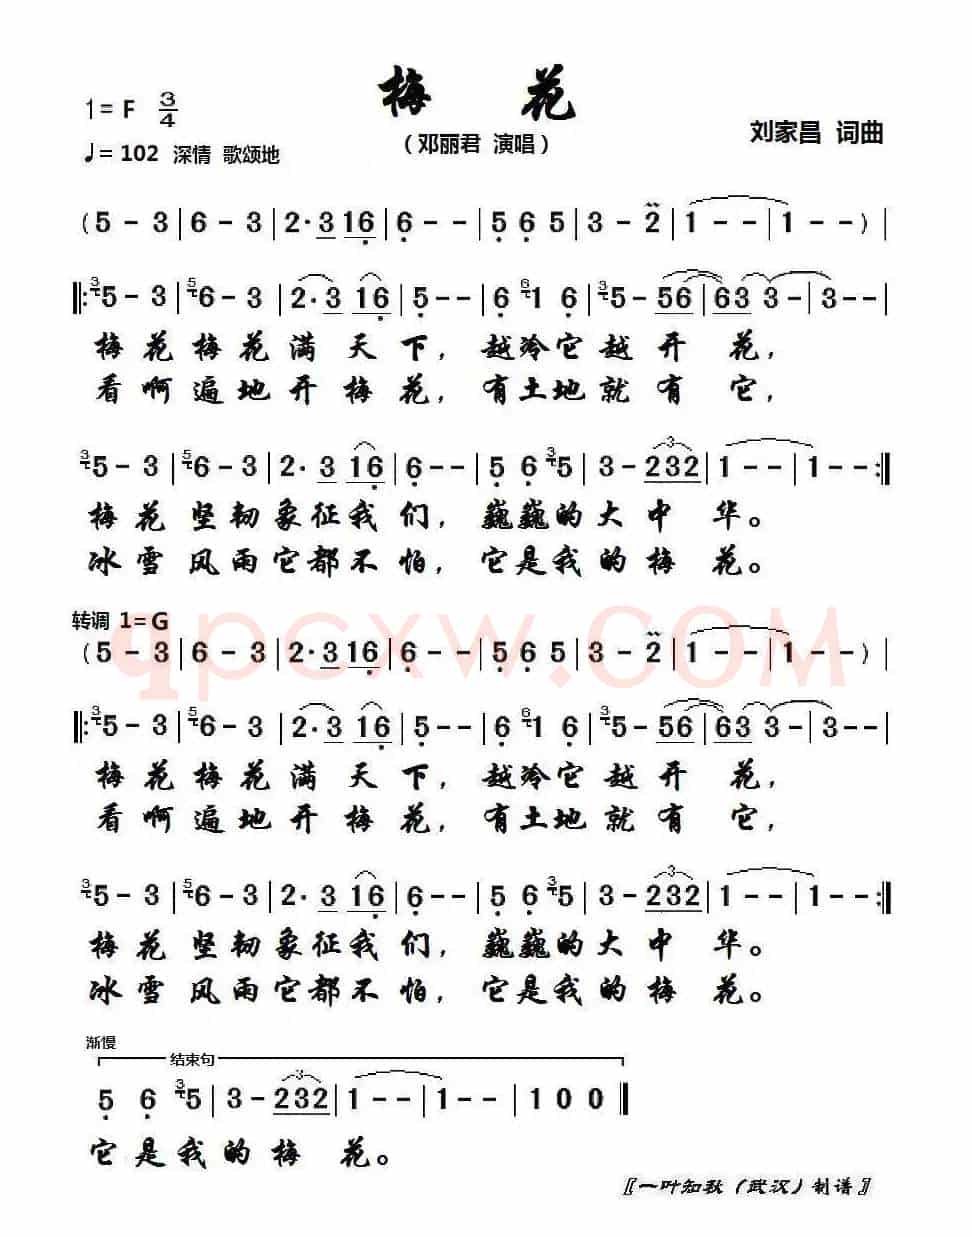 梅 花
1=F 3/4
(邓丽君 演唱)
刘家昌 词曲
♩=102 深情 歌颂地
(5 - 3 | 6 - 3 | 2· 3 16 | 6 - - | 5 6 5 | 3 - 2 | 1 - - | 1 - - ) |
‖: 3 5 - 3 | 5 6 - 3 | 2· 3 16 | 5 - - | 6 6 1 6 | 3 5 - 56 | 63 3 - | 3 - - |
梅花梅花满天下,越冷它越开花,
看啊遍地开梅花,有土地就有它,
3 5 - 3 | 5 6 - 3 | 2· 3 16 | 6 - - | 5 6 3 5 | 3 - 3 232 | 1 - - | 1 - - :‖
梅花坚韧象征我们,巍巍的大中华。
冰雪风雨它都不怕,它是我的梅花。
转调 1=G
(5 - 3 | 6 - 3 | 2· 3 16 | 6 - - | 5 6 5 | 3 - 2 | 1 - - | 1 - - ) |
qpcxw.COM
‖: 3 5 - 3 | 5 6 - 3 | 2· 3 16 | 5 - - | 6 6 1 6 | 3 5 - 56 | 63 3 - | 3 - - |
梅花梅花满天下,越冷它越开花,
看啊遍地开梅花,有土地就有它,
3 5 - 3 | 5 6 - 3 | 2· 3 16 | 6 - - | 5 6 3 5 | 3 - 3 232 | 1 - - | 1 - - :‖
梅花坚韧象征我们,巍巍的大中华。
冰雪风雨它都不怕,它是我的梅花。
渐慢
结束句
5 6 3 5 | 3 - 3 232 | 1 - - | 1 - - | 1 0 0 ‖
它是我的梅花。
〖一叶知秋(武汉)制谱〗